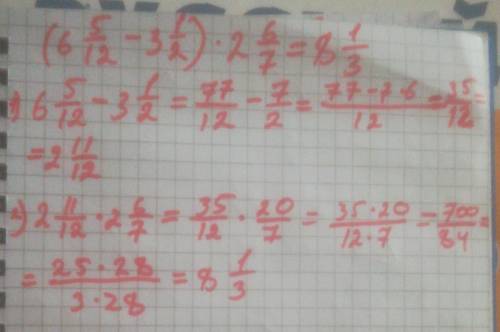 (6 5/12 - 3 1/2) · 2 6/7 = 8 1/3
1) 6 5/12 - 3 1/2 = 77/12 - 7/2 = (77 - 7·6)/12 = 35/12 =
= 2 11/12
2) 2 11/12 · 2 6/7 = 35/12 · 20/7 = (35·20)/(12·7) = 700/84 =
= (25·28)/(3·28) = 8 1/3